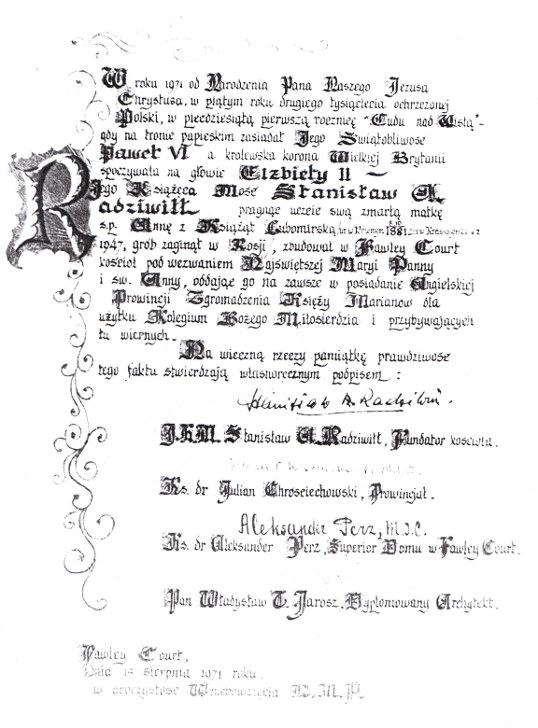 W roku 1971 od Narodzenia Pana Naszego Jezusa
Chrystusa, w piątym roku drugiego tysiąclecia ochrzczonej
Polski, w pięćdziesiątą pierwszą rocznicę "Cudu nad Wisłą"-
gdy na tronie papieskim zasiadał Jego Świątobliwość
Paweł VI a królewska korona Wielkiej Brytanii
spoczywała na głowie Elżbiety II —
Jego Książęca Mość Stanisław A.
Radziwiłł pragnąc uczcić swą zmarłą matkę
ś.p. Annę z Książąt Lubomirską,
1947, grób zaginął w Rosji, zbudował w Fawley Court
kościół pod wezwaniem Najświętszej Maryi Panny
i św. Anny, oddając go na zawsze w posiadanie Angielskiej
Prowincji Zgromadzenia Księży Marianów dla
użytku Kolegium Bożego Miłosierdzia i przybywających
tu wiernych.
Na wieczną rzeczy pamiątkę prawdziwość
tego faktu stwierdzają własnoręcznym podpisem :
Stanisław A. Radziwiłł.
J.K.M. Stanisław A. Radziwiłł, Fundator kościoła.
Ks. dr Julian Chróściechowski, Prowincjał.
Aleksander Perz, M.I.C.
Ks. dr Aleksander Perz, Superior Domu w Fawley Court.
Pan Władysław T. Jarosz, Dyplomowany Architekt.
Fawley Court,
Dnia 15 sierpnia 1971 roku,
w uroczystość Wniebowzięcia N.M.P.